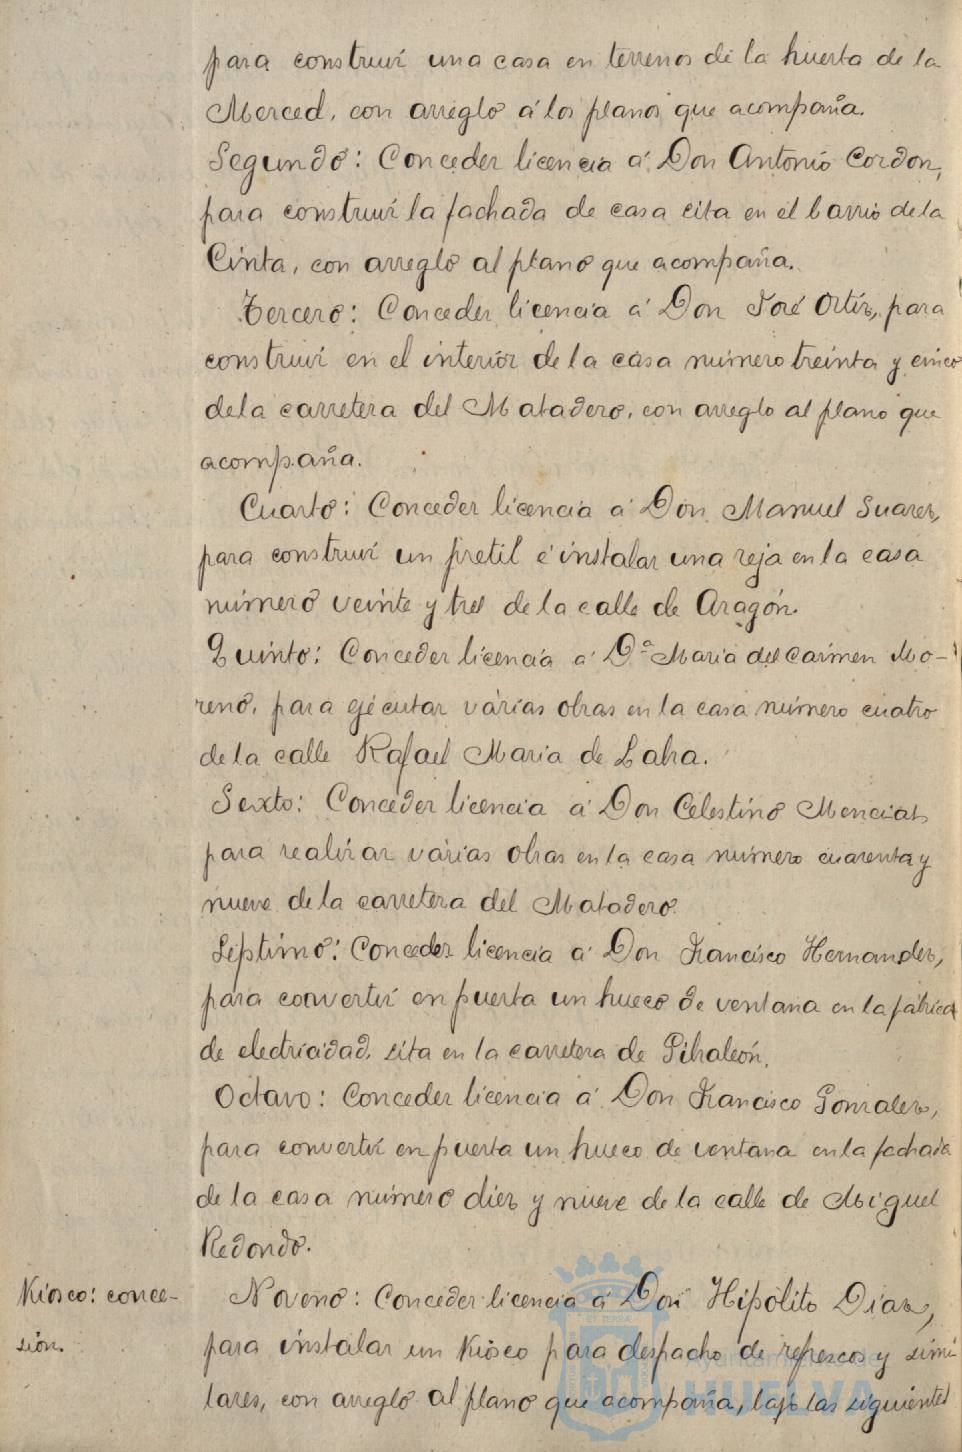 para construir una casa en terrenos de la huerta de la
Merced, con arreglo á los planos que acompaña.
Segundo: Conceder licencia á Don Antonio Cordon,
para construir la fachada de casa sita en el barrio de la
Cinta, con arreglo al plano que acompaña.
Tercero: Conceder licencia á Don José Ortíz, para
construir en el interior de la casa número treinta y cinco
de la carretera del Matadero, con arreglo al plano que
acompaña.
Cuarto: Conceder licencia á Don Manuel Suarez,
para construir un pretil é instalar una reja en la casa
número veinte y tres de la calle de Aragón.
Quinto: Conceder licencia á Dª Maria del Carmen Mo-
reno, para ejecutar várias obras en la casa número cuatro
de la calle Rafael Maria de Labra.
Sexto: Conceder licencia á Don Celestino
para realizar várias obras en la casa número cuarenta y
nueve de la carretera del Matadero.
Séptimo: Conceder licencia á Don Francisco Hernandez,
para convertir en puerta un hueco de ventana en la fábrica
de electricidad, sita en la carretera de Gibraleón.
Octavo: Conceder licencia á Don Francisco Gonzalez,
para convertir en puerta un hueco de ventana en la fachada
de la casa número diez y nueve de la calle de Miguel
Redondo.
Kiosco: conce-
sión.
Noveno: Conceder licencia á Don Hipólito Diaz,
para instalar un Kiosco para despacho de refrescos y simi
lares, con arreglo al plano que acompaña, bajo las siguientes
Ayuntamiento de
HUELVA